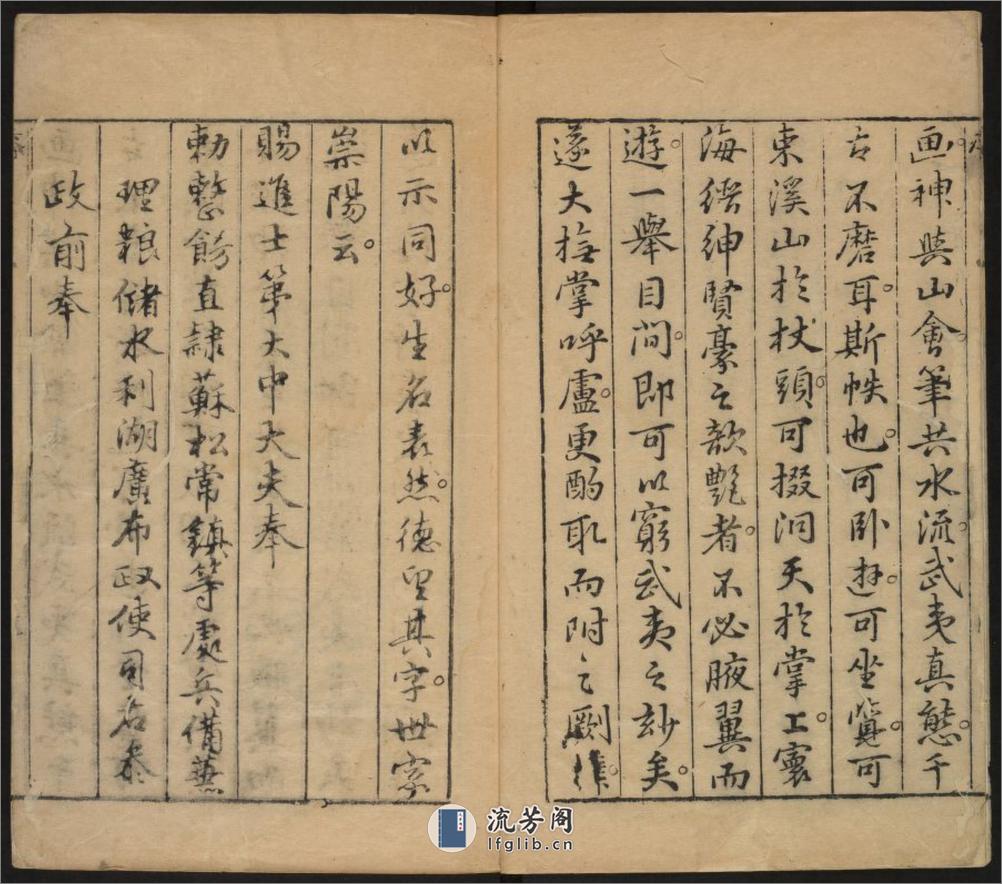 画神與山會。筆共水流。武夷真態。千
古不磨耳。斯帙也。可臥遊。可坐覽。可
束溪山於杖頭。可掇洞天於掌上。寰
海縉紳賢豪之歆艷者。不必腋翼而
遊。一舉目間。即可以窮武夷之玅矣。
遂大撫掌呼盧。更酌取而附之劂
以示同好。生名表然。德望其字。世家
崇陽云。
賜進士第大中大夫奉
勅整飭直隸蘇松常鎮等處兵備兼
理粮儲水利湖廣布政使司右叅
政前奉
流芳阁
lfglib.cn